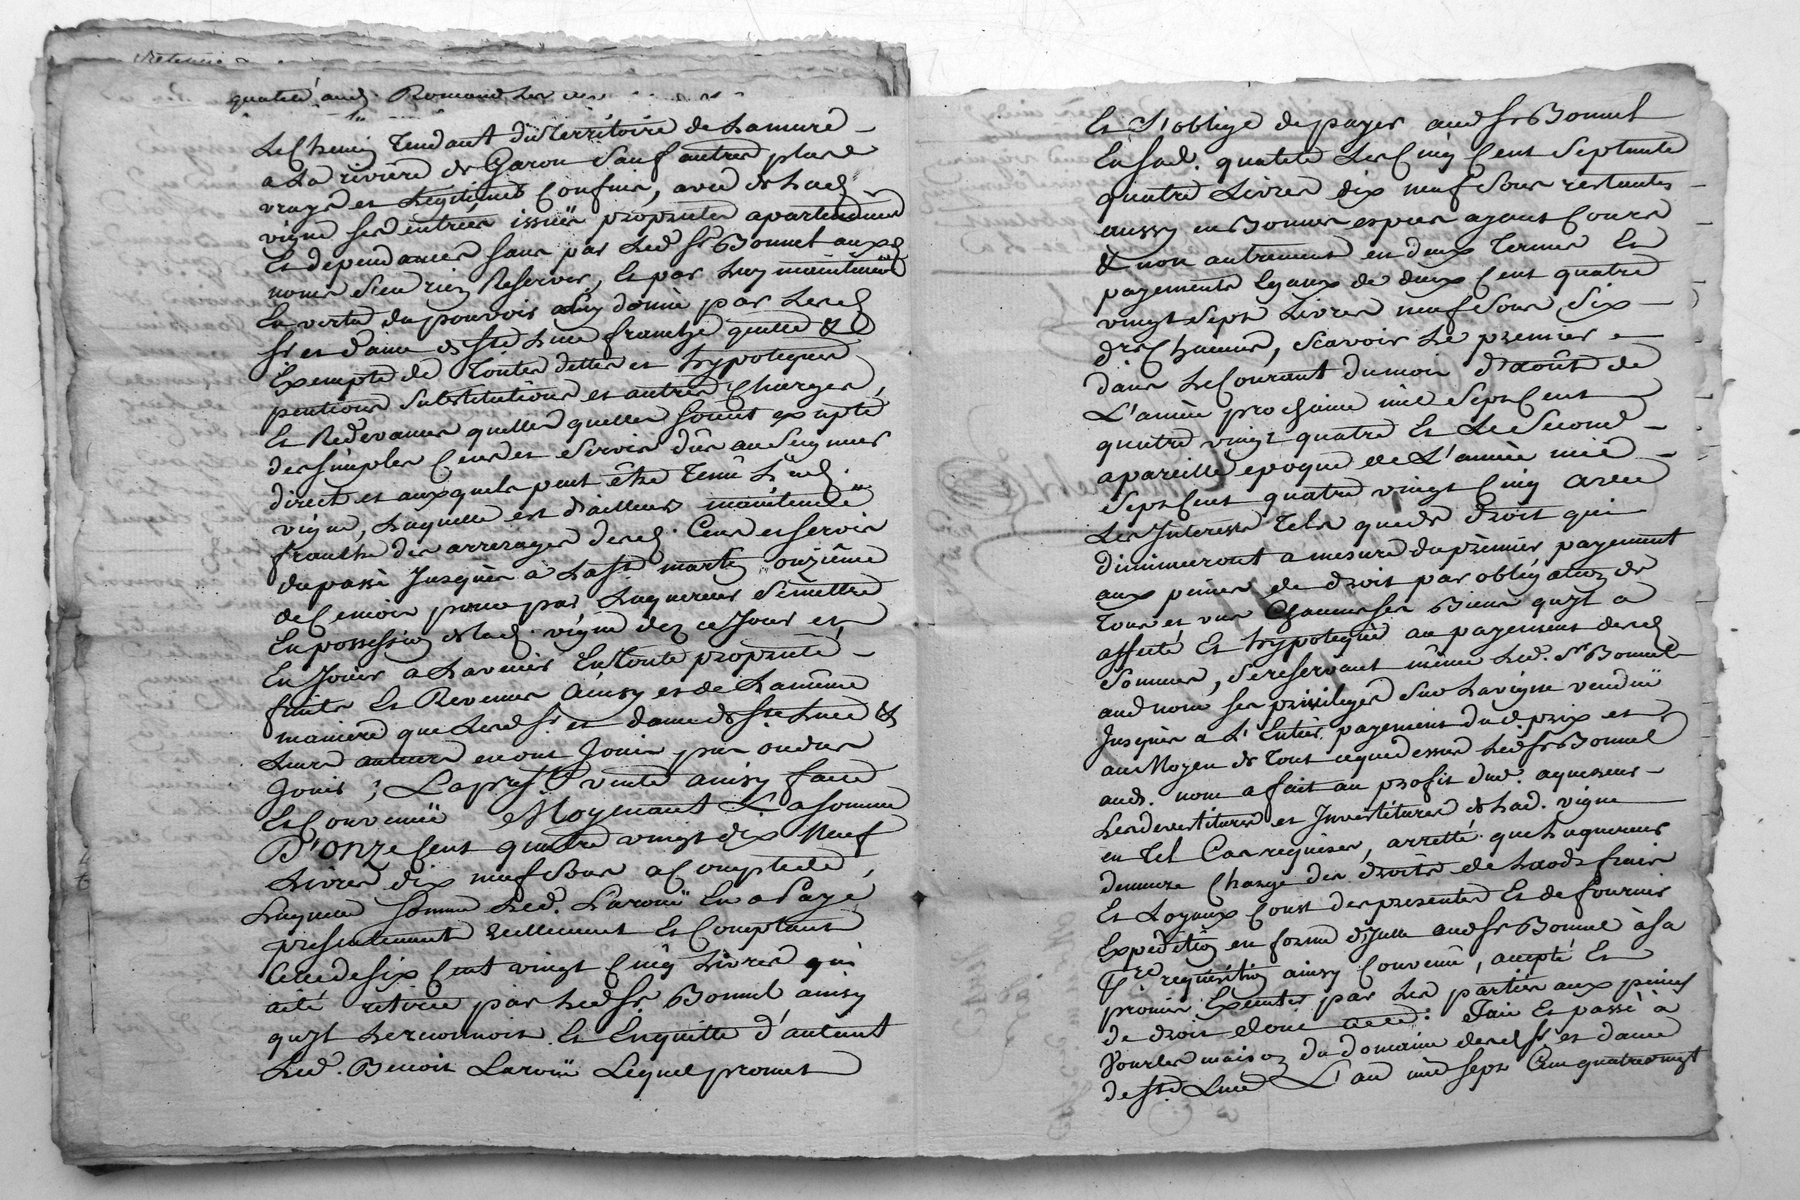 quatié aud. Romand Les
Le Chemin Tendant du Territoire de Lamure
a La riviere de Garon Sauf autres plus
vrays et Legitimes Confins, avec de Lad.
vigne ses entrées issuë proprietes apartenances
Et dependances sans par Led. Sr. Bonnet auxd.
noms s'en rien Reserver, Et par Luy maintenuë
En vertu du pouvoir a Luy donné par Lesd.
Sr. et dame de Ste. Luce franche quitte &
Exempte de Toutes dettes et hypoteques
pentions Substitutions et autres Charges
Et Redevances quelles quelles soient excepté
des simples Cens et Servis dûs au Seigneur
direct et auxquels peut être Tenû Lad.
vigne, Laquelle est d'ailleurs maintenuë
franche des arrerages desd. Cens et servis
du passé Jusques à La St. martin onzième
de Ce mois pour par Laquereur Semettre
En possession de Lad. vigne dez ce Jour et
En Jouir a Lavenir En Toute proprieté
fruits Et Revenus Ainsy et de La même
maniere que Lesd. Sr. et dame de Ste Luce &
Leurs auteurs en ont Joui pû ou dû en
Jouir; La prste. vente ainsy faite
Et Convenuë Moyenant La somme
D'onze Cent quatre vingt dix Neuf
Livres dix neuf Sous a Compte de
Laquelle somme Led. Laroüe En a Payé
presentement reellement Et Comptant
Celle de six Cent vingt Cinq Livres qui
a été retirée par Led. Sr. Bonnet ainsy
qu'il Le reconnoit Et En quitte d'autant
Led. Benoit Laroüe Lequel promet
Et S'oblige de payer aud. Sr. Bonnet
En sad. qualité Les Cinq Cent Septante
quatre Livres dix neuf Sous restantes
aussy en Bonnes especes ayant Cours
& non autrement en deux Termes Et
payements Egaux de deux Cent quatre
vingt Sept Livres neuf Sous Six
drs. Chacuns, Scavoir Le premier
dans Le Courant du mois D'août de
L'année prochaine mil Sept Cent
quatre vingt quatre Et Le Second
a pareille epoque de L'année mil
Sept Cent quatre vingt Cinq avec
Les Interests Tels que de droit qui
diminueront a mesure du premier payement
aux peines de droit par obligation de
Tous et uns Chacuns ses Biens qu'il a
affecté Et hypotequé au payement desd.
Sommes, Se reservant même Led. Sr. Bonnet
aud. nom ses privileges Sur La vigne venduë
Jusques a L'Entier payement dud. prix et
au Moyen de Tout ce que dessus Led. Sr. Bonnet
aud. nom a fait au profit dud. aquereur
Les devestitures et Investitures de Lad. vigne
en Tel Cas requises, arretté que Laquereur
demeure Chargé des droits de Laods frais
Et Loyaux Cousts des presentes Et de fournir
Expedition en forme d'Icelle aud. Sr. Bonnet à sa
1re. requisition ainsy Convenû, accepté Et
promis Executer par Les parties aux peines
de droit dont acte: fait Et passé à
Vourles maison du domaine desd. Sr. et dame
de Ste. Luce L'an mil sept Cent quatrevingt